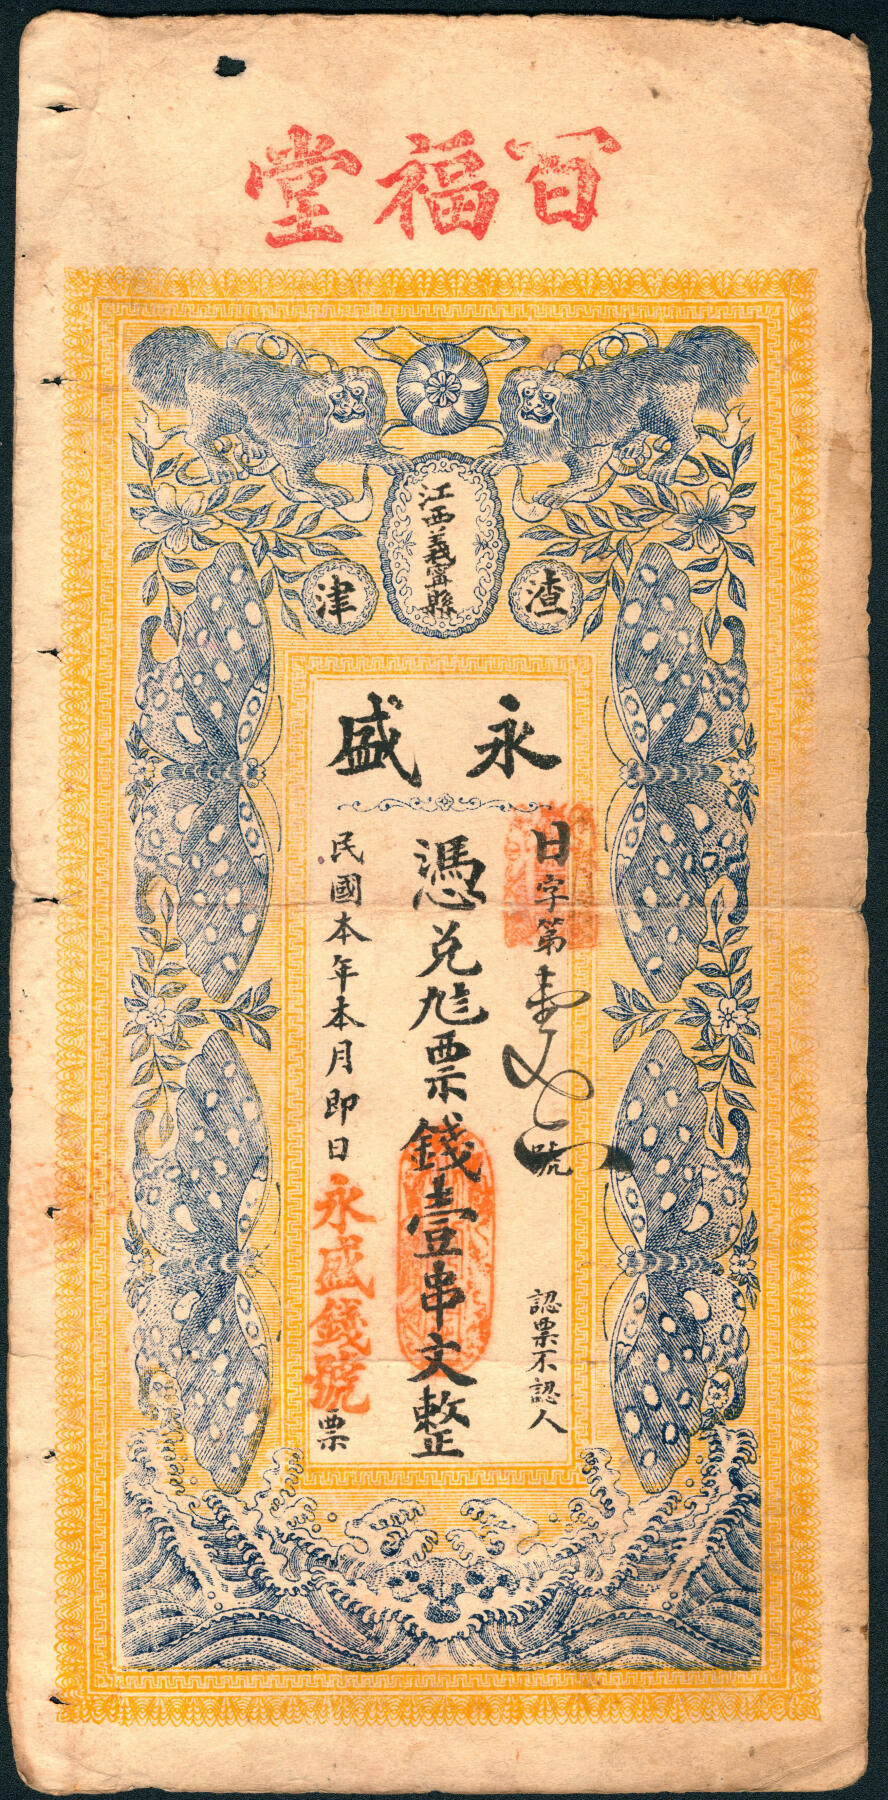 百福堂
江西義寧縣
渣津
永盛
日字第號
認票不認人
憑兌票錢壹串文整
民國本年本月即日永盛錢號票